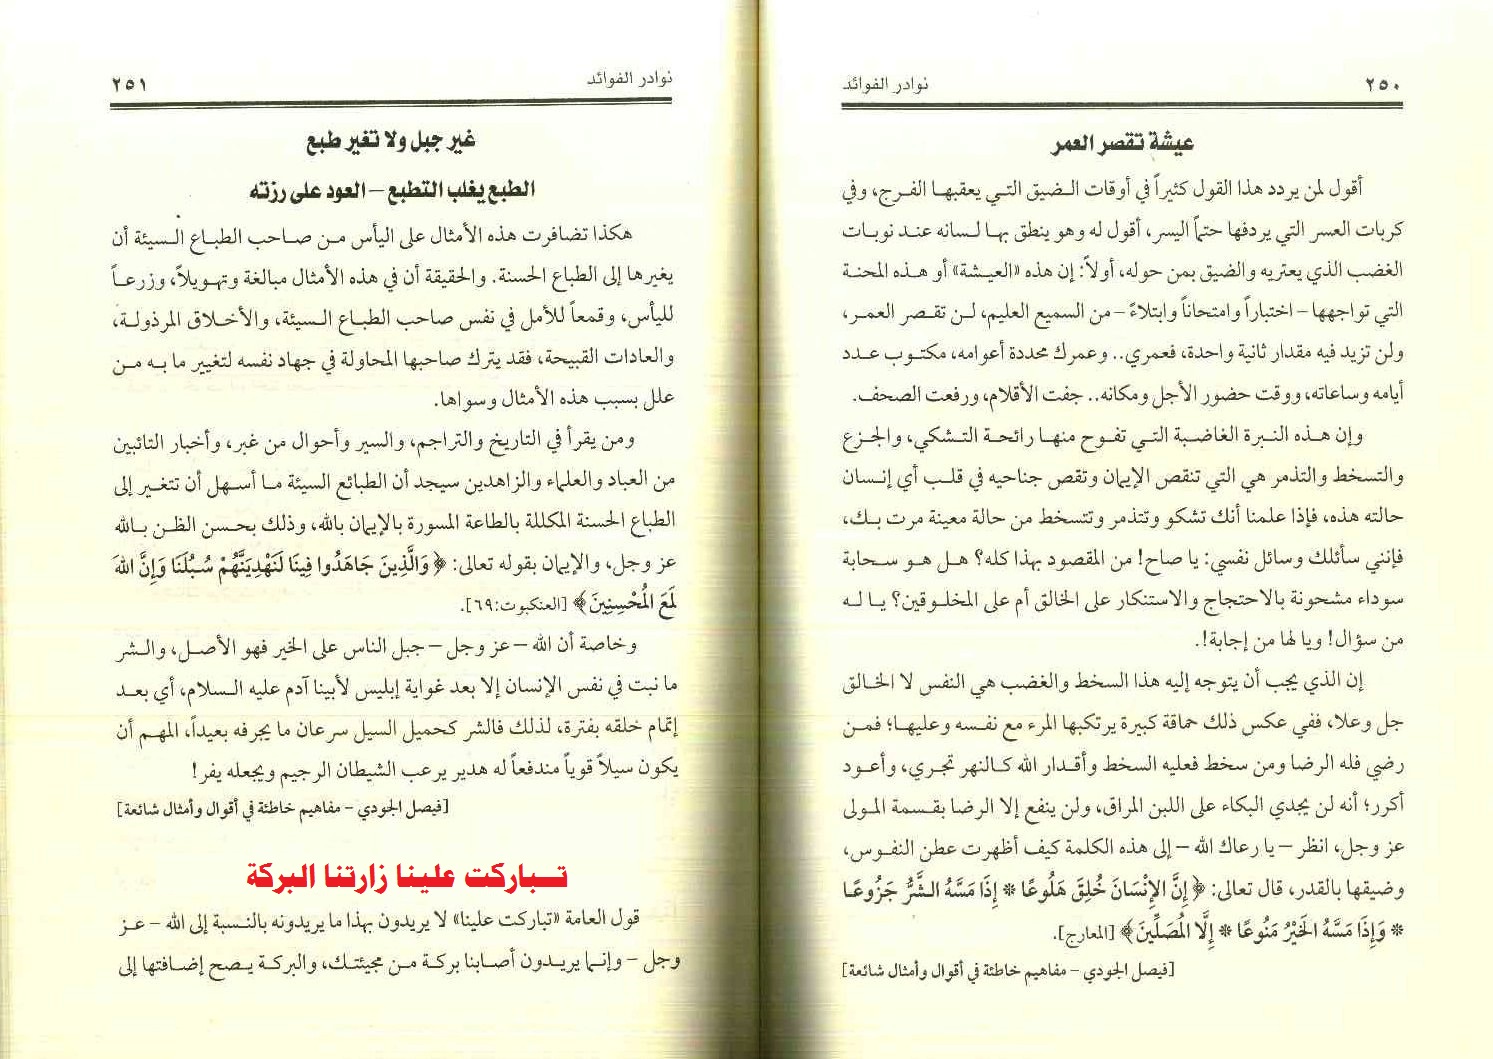 نوادر الفوائد ٢٥٠
عيشة تقصر العمر
أقول لمن يردد هذا القول كثيراً في أوقات الضيق التي يعقبها الفرج، وفي
كربات العسر التي يردفها حتماً اليسر، أقول له وهو ينطق بها لسانه عند نوبات
الغضب الذي يعتريه والضيق بمن حوله، أولاً: إن هذه «العيشة» أو هذه المحنة
التي تواجهها – اختباراً وامتحاناً وابتلاءً – من السميع العليم، لن تقصر العمر،
ولن تزيد فيه مقدار ثانية واحدة، فعمري.. وعمرك محددة أعوامه، مكتوب عدد
أيامه وساعاته، ووقت حضور الأجل ومكانه.. جفت الأقلام، ورفعت الصحف.
وإن هذه النبرة الغاضبة التي تفوح منها رائحة التشكي، والجزع
والتسخط والتذمر هي التي تنقص الإيمان وتقص جناحيه في قلب أي إنسان
حالته هذه، فإذا علمنا أنك تشكو وتتذمر وتتسخط من حالة معينة مرت بك،
فإنني سأئلك وسائل نفسي: يا صاح! من المقصود بهذا كله؟ هل هو سحابة
سوداء مشحونة بالاحتجاج والاستنكار على الخالق أم على المخلوقين؟ يا له
من سؤال! ويا لها من إجابة!.
إن الذي يجب أن يتوجه إليه هذا السخط والغضب هي النفس لا الخالق
جل وعلا، ففي عكس ذلك حماقة كبيرة يرتكبها المرء مع نفسه وعليها؛ فمن
رضي فله الرضا ومن سخط فعليه السخط وأقدار الله كالنهر تجري، وأعود
أكرر؛ أنه لن يجدي البكاء على اللبن المراق، ولن ينفع إلا الرضا بقسمة المولى
عز وجل، انظر – يا رعاك الله – إلى هذه الكلمة كيف أظهرت عطن النفوس،
وضيقها بالقدر، قال تعالى: ﴿ إِنَّ الإِنْسَانَ خُلِقَ هَلُوعًا * إِذَا مَسَّهُ الشَّرُّ جَزُوعًا
* وَإِذَا مَسَّهُ الخَيْرُ مَنُوعًا * إِلَّا المُصَلِّينَ﴾ [المعارج].
[فيصل الجودي – مفاهيم خاطئة في أقوال وأمثال شائعة]
نوادر الفوائد ٢٥١
غير جبل ولا تغير طبع
الطبع يغلب التطبع – العود على رزته
هكذا تضافرت هذه الأمثال على اليأس من صاحب الطباع السيئة أن
يغيرها إلى الطباع الحسنة. والحقيقة أن في هذه الأمثال مبالغة وتهويلاً، وزرعاً
لليأس، وقمعاً للأمل في نفس صاحب الطباع السيئة، والأخلاق المرذولة،
والعادات القبيحة، فقد يترك صاحبها المحاولة في جهاد نفسه لتغيير ما به من
علل بسبب هذه الأمثال وسواها.
ومن يقرأ في التاريخ والتراجم، والسير وأحوال من غبر، وأخبار التائبين
من العباد والعلماء والزاهدين سيجد أن الطبائع السيئة ما أسهل أن تتغير إلى
الطباع الحسنة المكللة بالطاعة المسورة بالإيمان بالله، وذلك بحسن الظن بالله
عز وجل، والإيمان بقوله تعالى: ﴿ وَالَّذِينَ جَاهَدُوا فِينَا لَنَهْدِيَنَّهُمْ سُبُلَنَا وَإِنَّ اللهَ
لَمَعَ المُحْسِنِينَ﴾ [العنكبوت:٦٩].
وخاصة أن الله – عز وجل – جبل الناس على الخير فهو الأصل، والشر
ما نبت في نفس الإنسان إلا بعد غواية إبليس لأبينا آدم عليه السلام، أي بعد
إتمام خلقه بفترة، لذلك فالشر كحميل السيل سرعان ما يجرفه بعيداً، المهم أن
يكون سيلاً قوياً مندفعاً له هدير يرعب الشيطان الرجيم ويجعله يفر!
[فيصل الجودي – مفاهيم خاطئة في أقوال وأمثال شائعة]
تـباركت علينا زارتنا البركة
قول العامة «تباركت علينا» لا يريدون بهذا ما يريدونه بالنسبة إلى الله – عز
وجل – وإنما يريدون أصابنا بركة من مجيئتك، والبركة يصح إضافتها إلى